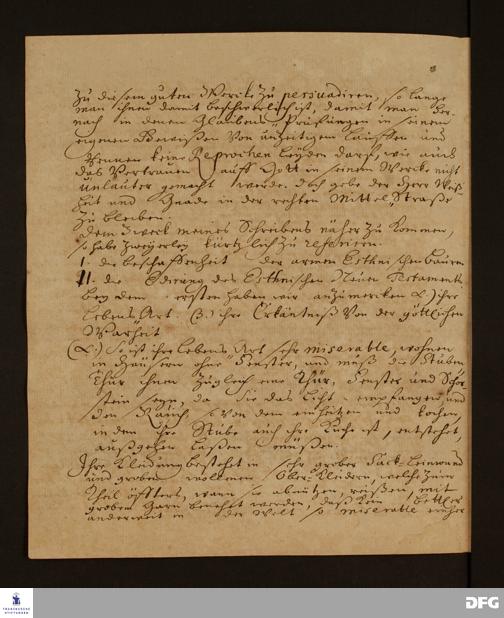 zu diesem guten Wercke zu persuadiren, so lange
man ihnen damit beschwerlich ist, damit man her-
nach in denen Glaubens-Prüfungen in seinem
eigenen Gewißen von unzeitigem Lauffen und
Rennen keine Reprochen leyden darf, wie auch
das Vertrauen auff Gott in seinem Wercke nicht
unlauter gemacht werde. Doch gebe der Herr Weiß-
heit und Gnade in der rechten Mittel-Straße
zu bleiben.
Dem Zweck meines Schreibens näher zu kommen,
so habe zweyerley kürtzlich zu referiren
I. die beschaffenheit der armen Esthnischen Bauren
II. die Edirung des Esthnischen Neuen Testaments
bey dem ersten haben wir anzumercken α.) ihre
Lebens Art. β.) ihre Erkäntniß von der göttlichen
Warheit
α.) So ist ihre Lebens Art sehr miserable, wohnen
in Häusern ohne Fenster, und muß die Stuben
Thür ihnen zugleich eine Thür, Fenster und Schor-
stein seyn, da sie das Licht empfangen und
den Rauch, von dem einheitzen und kochen,
indem ihre Stube auch ihre Küche ist, entstehet,
außgehen laßen müßen.
Ihre Kleidung bestehet in sehr grober Sack-Leinwand
und groben wollenen Ober-Kleidern, welche zum
Theil öffters, wann sie abnützen, reißen, mit
grobem Garn benehet werden, daß kein Bettler
anderweit in der Welt so miserable einher
FRANCKESCHE
STIFTUNGEN
DFG